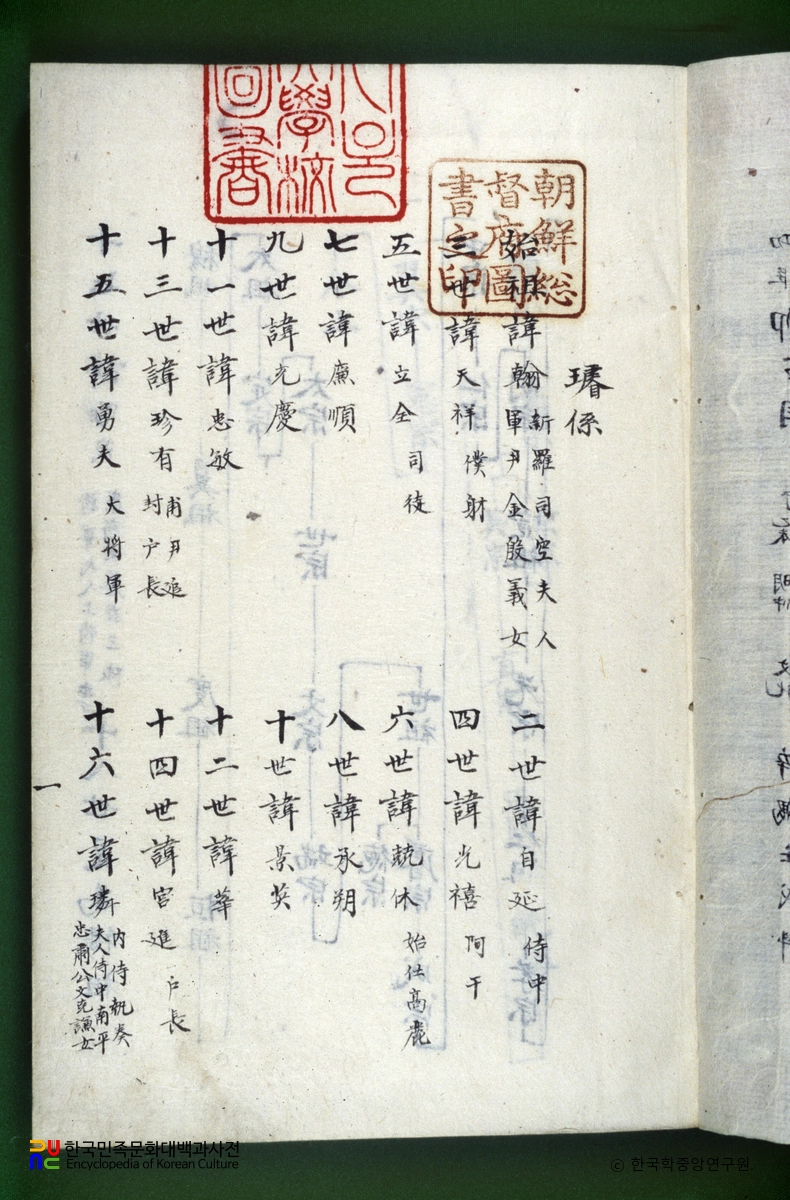 朝鮮総
督府圖
書之印
學校
圖書
璿係
始祖諱翰 新羅司空夫人
軍尹金殷義女
二世諱自延 侍中
三世諱天祥 僕射
四世諱光禧 阿干
五世諱立全 司徒
六世諱兢休 始仕高麗
七世諱廉順
八世諱承朔
九世諱充慶
十世諱景英
十一世諱忠敏
十二世諱華
十三世諱珍有 甫尹追
封戶長
十四世諱宮進 戶長
十五世諱勇夫 大將軍
十六世諱璘 內侍執奏
夫人侍中南平
忠肅公文克謙女
一
한국민족문화대백과사전
Encyclopedia of Korean Culture
© 한국학중앙연구원